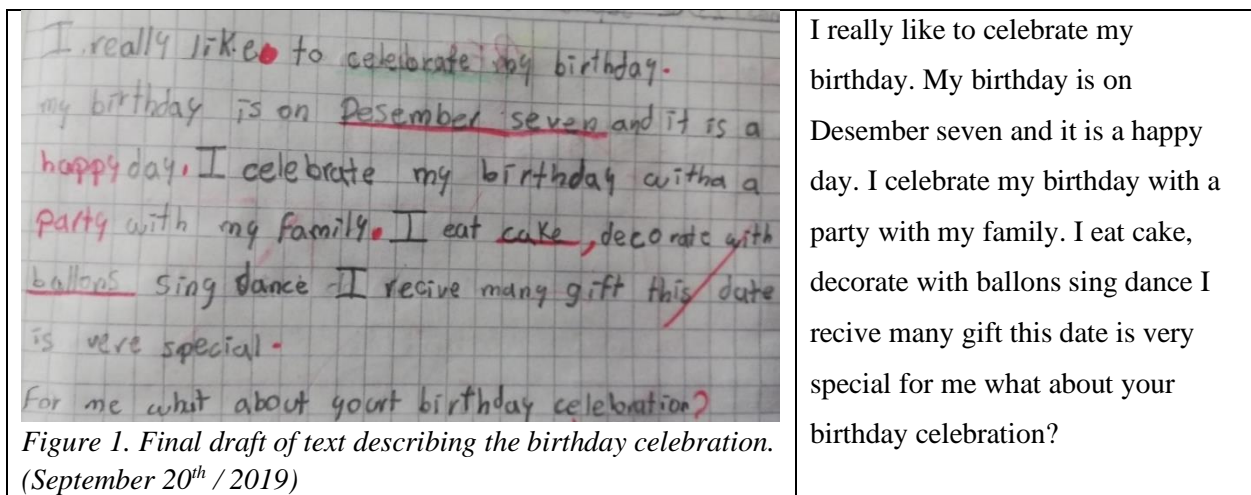 I really like to celebrate my birthday.
my birthday is on Desember seven and it is a
happy day. I celebrate my birthday witha a
party with my family. I eat cake, decorate with
ballons sing dance I recive many gift this date
is vere special.
For me whit about yourt birthday celebration?
Figure 1. Final draft of text describing the birthday celebration.
(September 20th / 2019)
I really like to celebrate my
birthday. My birthday is on
Desember seven and it is a happy
day. I celebrate my birthday with a
party with my family. I eat cake,
decorate with ballons sing dance I
recive many gift this date is very
special for me what about your
birthday celebration?